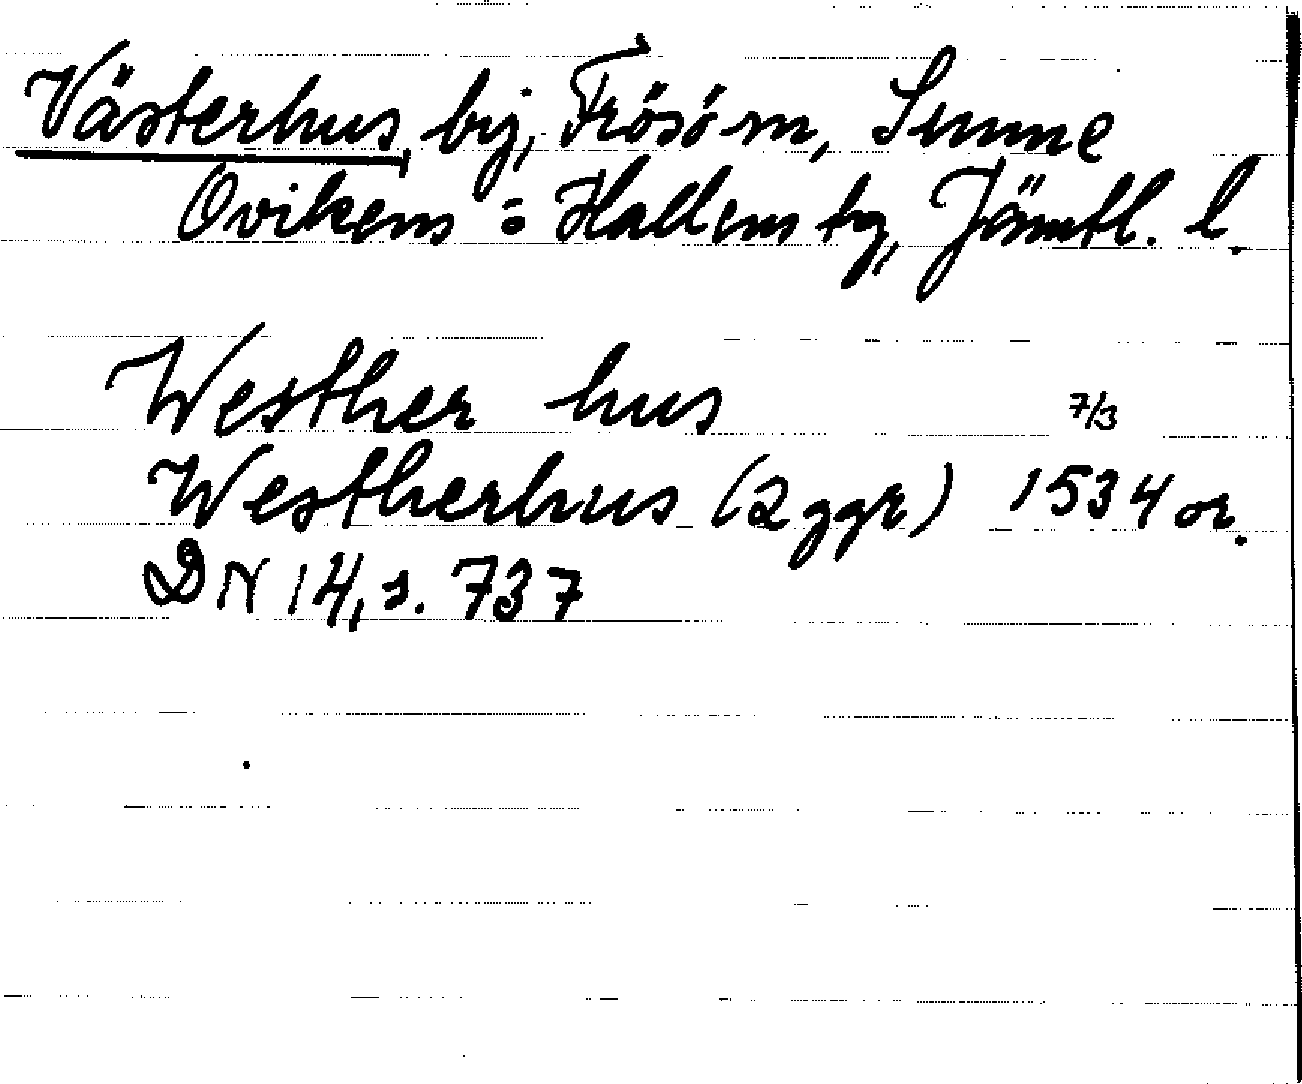 Västerhus, by, Frösö sn, Sunne
Ovikens = Hallens tg, Jämtl. l.
Westher hus 7/3
Westherhus (2 ggr) 1534 or.
DN 14, s. 737